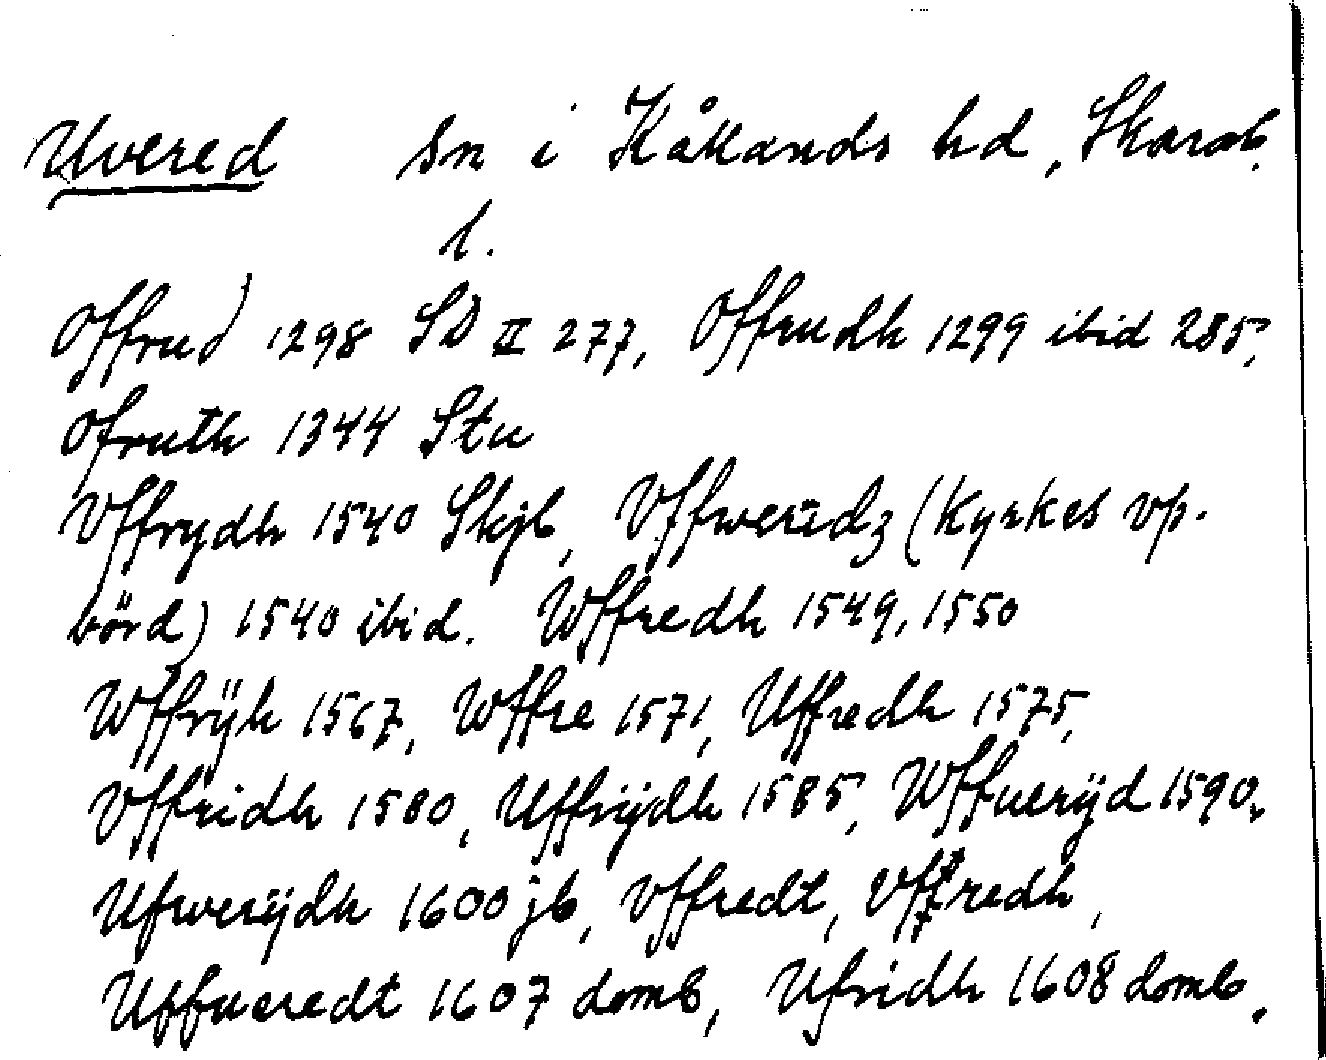 Uvered sn i Kållands hd, Skarab.
l.
Offrud 1298 SD II 277, Offrudh 1299 ibid 285,
Ofruth 1344 Stu
Vffrydh 1540 Skjb, Vffweridz (Kyrkes vp-
börd) 1540 ibid. Wffredh 1549, 1550
Wffrÿh 1567, Wffre 1571, Uffredh 1575,
Vffridh 1580, Uffrÿdh 1585, Wffuerÿd 1590,
Ufwerÿdh 1600 jb, Vffredt, Vffredh,
Uffueredt 1607 domb, Ufridh 1608 domb.